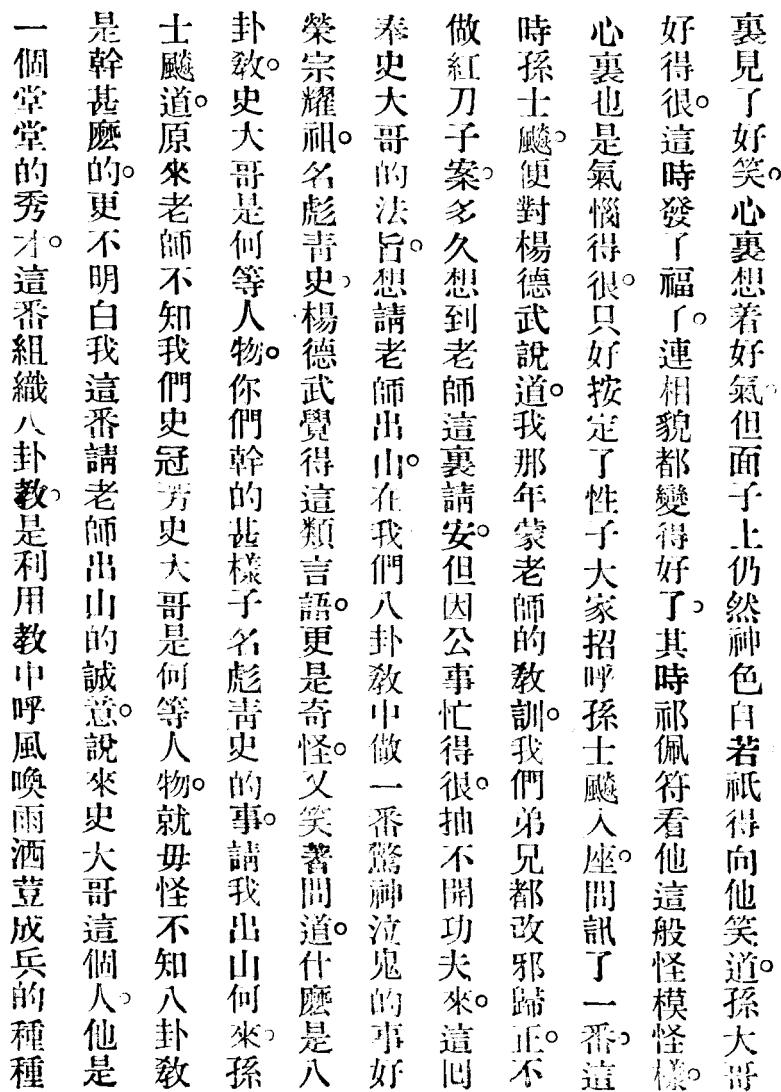 裏見了好笑。心裏想着好氣。但面子上仍然神色自若祇得向他笑道。孫大哥
好得很。這時發了福了。連相貌都變得好了。其時祁佩符看他這般怪模怪樣。
心裏也是氣惱得很。只好按定了性子大家招呼孫士飈入座。問訊了一番。這
時孫士飈。便對楊德武說道。我那年蒙老師的敎訓。我們弟兄都改邪歸正。不
做紅刀子案。多久想到老師這裏請安。但因公事忙得很。抽不開功夫來。這回
奉史大哥的法旨。想請老師出山。在我們八卦敎中做一番驚神泣鬼的事好
榮宗耀祖。名彪靑史。楊德武覺得這類言語。更是奇怪。又笑著問道。什麼是八
卦敎。史大哥是何等人物。你們幹的甚樣子名彪靑史的事。請我出山何來。孫
士飈道。原來老師不知我們史冠芳史大哥是何等人物。就毋怪不知八卦敎
是幹甚麼的。更不明白我這番請老師出山的誠意。說來史大哥這個人。他是
一個堂堂的秀才。這番組織八卦教。是利用教中呼風喚雨洒荳成兵的種種